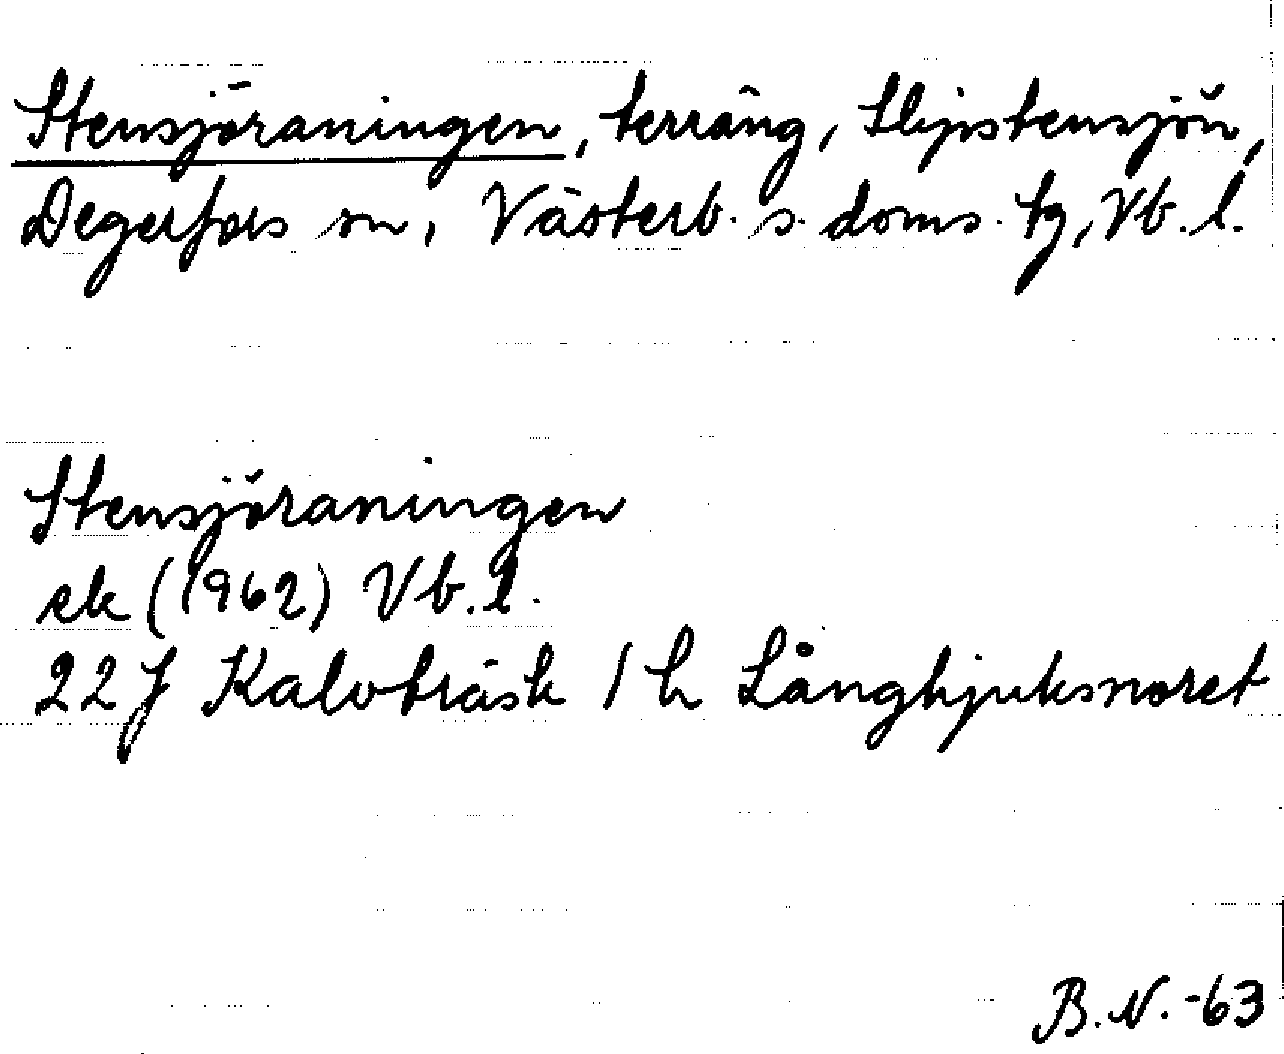 Stensjöraningen, terräng, Slipstensjön,
Degerfors sn, Västerb. s. doms. tg, Vb. l.
Stensjöraningen
ek (1962) Vb. l.
22J Kalvträsk 1 h Långhjuksnoret
B.N. -63